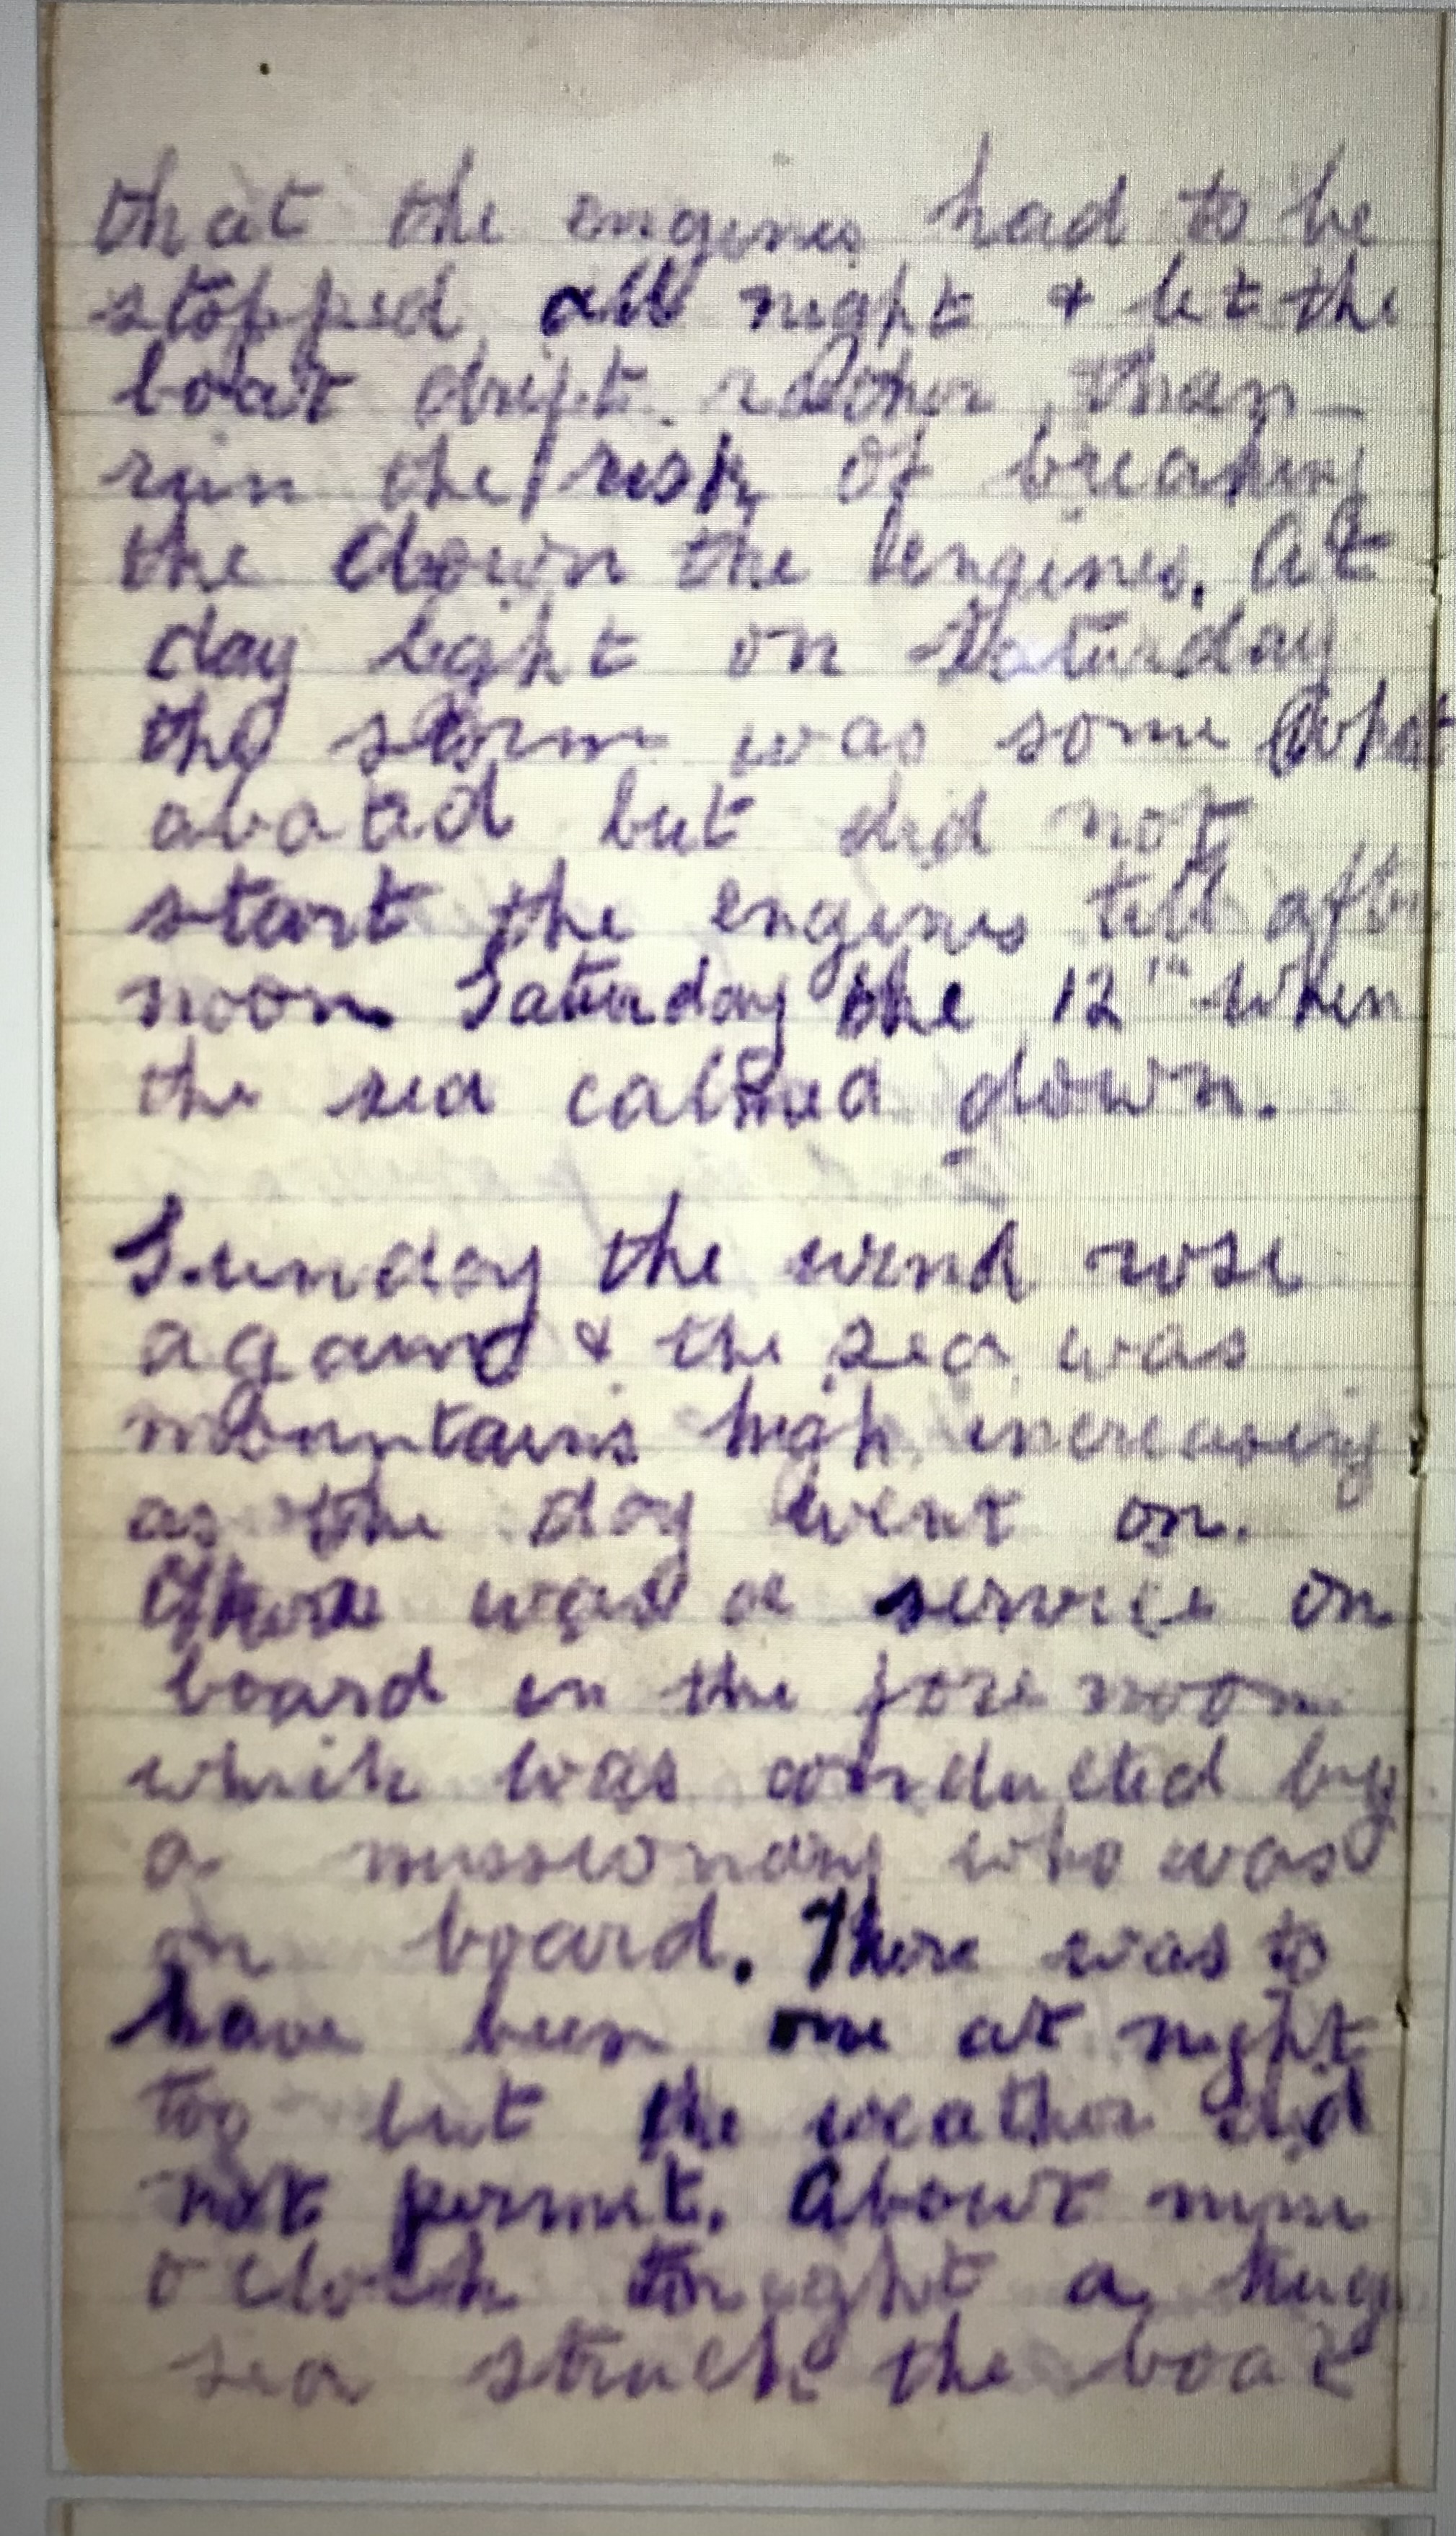 that the engines had to be
stopped all night & let the
boat drift rather than
run the risk of breaking
the down the engines. At
day light on Saturday
the storm was some what
abated but did not
start the engines till after
noon Saturday the 12th when
the sea calmed down.
Sunday the wind rose
again & the sea was
mountains high increasing
as the day went on.
There was a service on
board in the fore noon
which was conducted by
a missionary who was
on board. There was to
have been one at night
too but the weather did
not permit. About nine
o clock tonight a huge
sea struck the boat